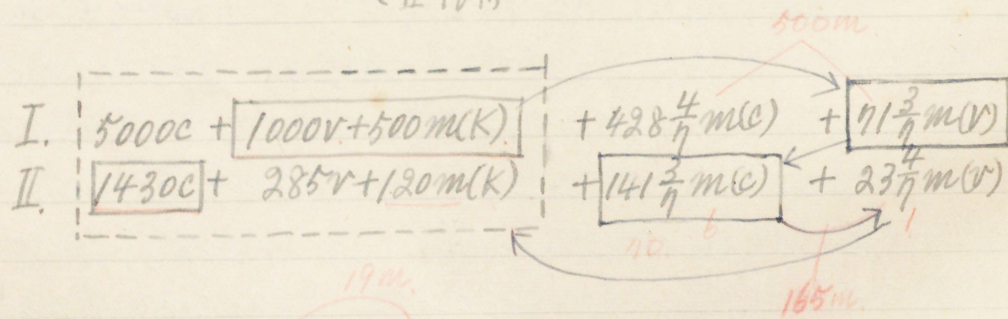 500m
I. 5000c + 1000v+500m(K) + 428 4/7 m(c) + 71 3/7 m(v)
II. 1430c + 285v+120m(K) + 141 3/7 m(c) + 23 4/7 m(v)
6 1
19m. 165m.